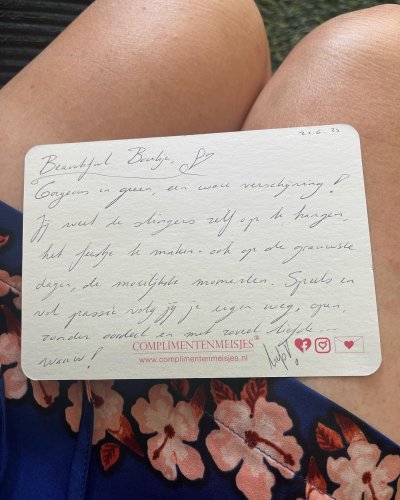 21.6.25
Beautiful Boukje,
Gorgeous in green, een ware verschijning!
Jij weet de slingers zelf op te hangen,
het feestje te maken - ook op de grauwste
dagen, de moeilijkste momenten. Speels en
vol passie volg jij je eigen weg, open,
zonder oordeel en met zoveel liefde...
COMPLIMENTENMEISJES®
www.complimentenmeisjes.nl
wauw!